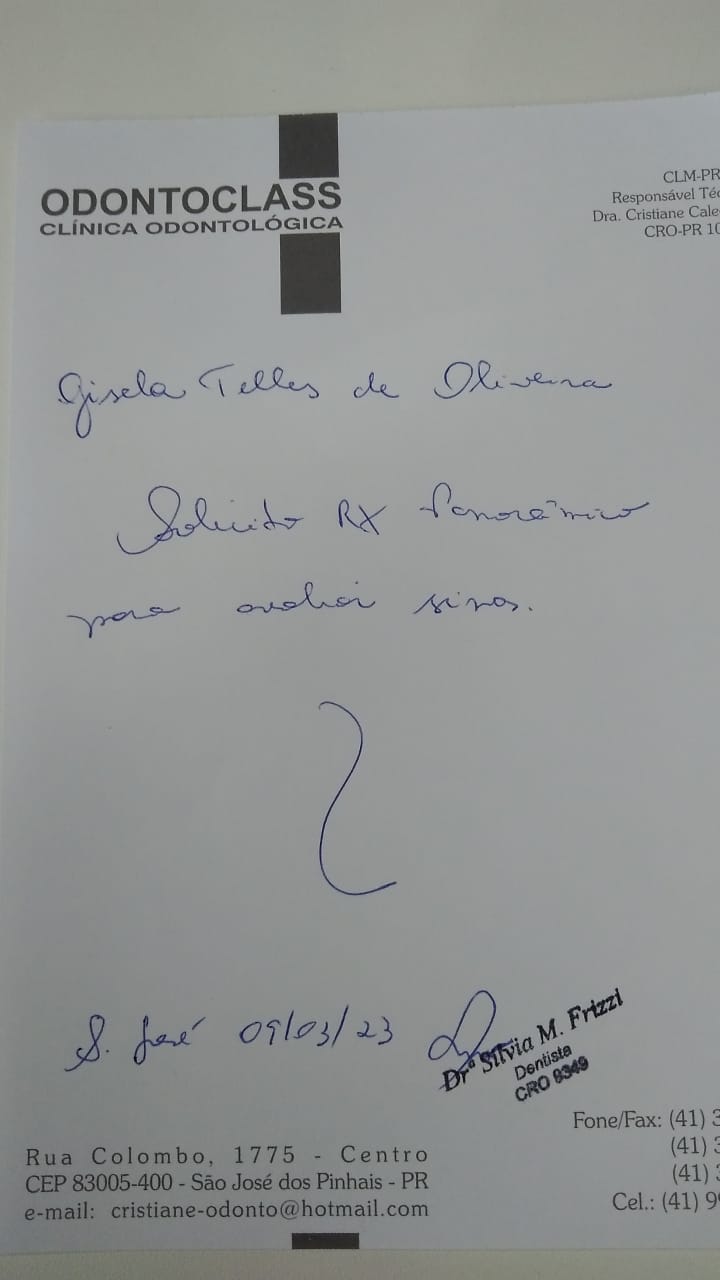 ODONTOCLASS
CLÍNICA ODONTOLÓGICA
CLM-PR
Responsável Téc
Dra. Cristiane Cale
CRO-PR 10
Gisela Telles de Oliveira
Solicito RX Panorâmico
para avaliar sisos.
S. José 09/03/23
Drª Silvia M. Frizzi
Dentista
CRO 8349
Rua Colombo, 1775 - Centro
CEP 83005-400 - São José dos Pinhais - PR
e-mail: cristiane-odonto@hotmail.com
Fone/Fax: (41) 3
(41) 3
(41) 3
Cel.: (41) 9